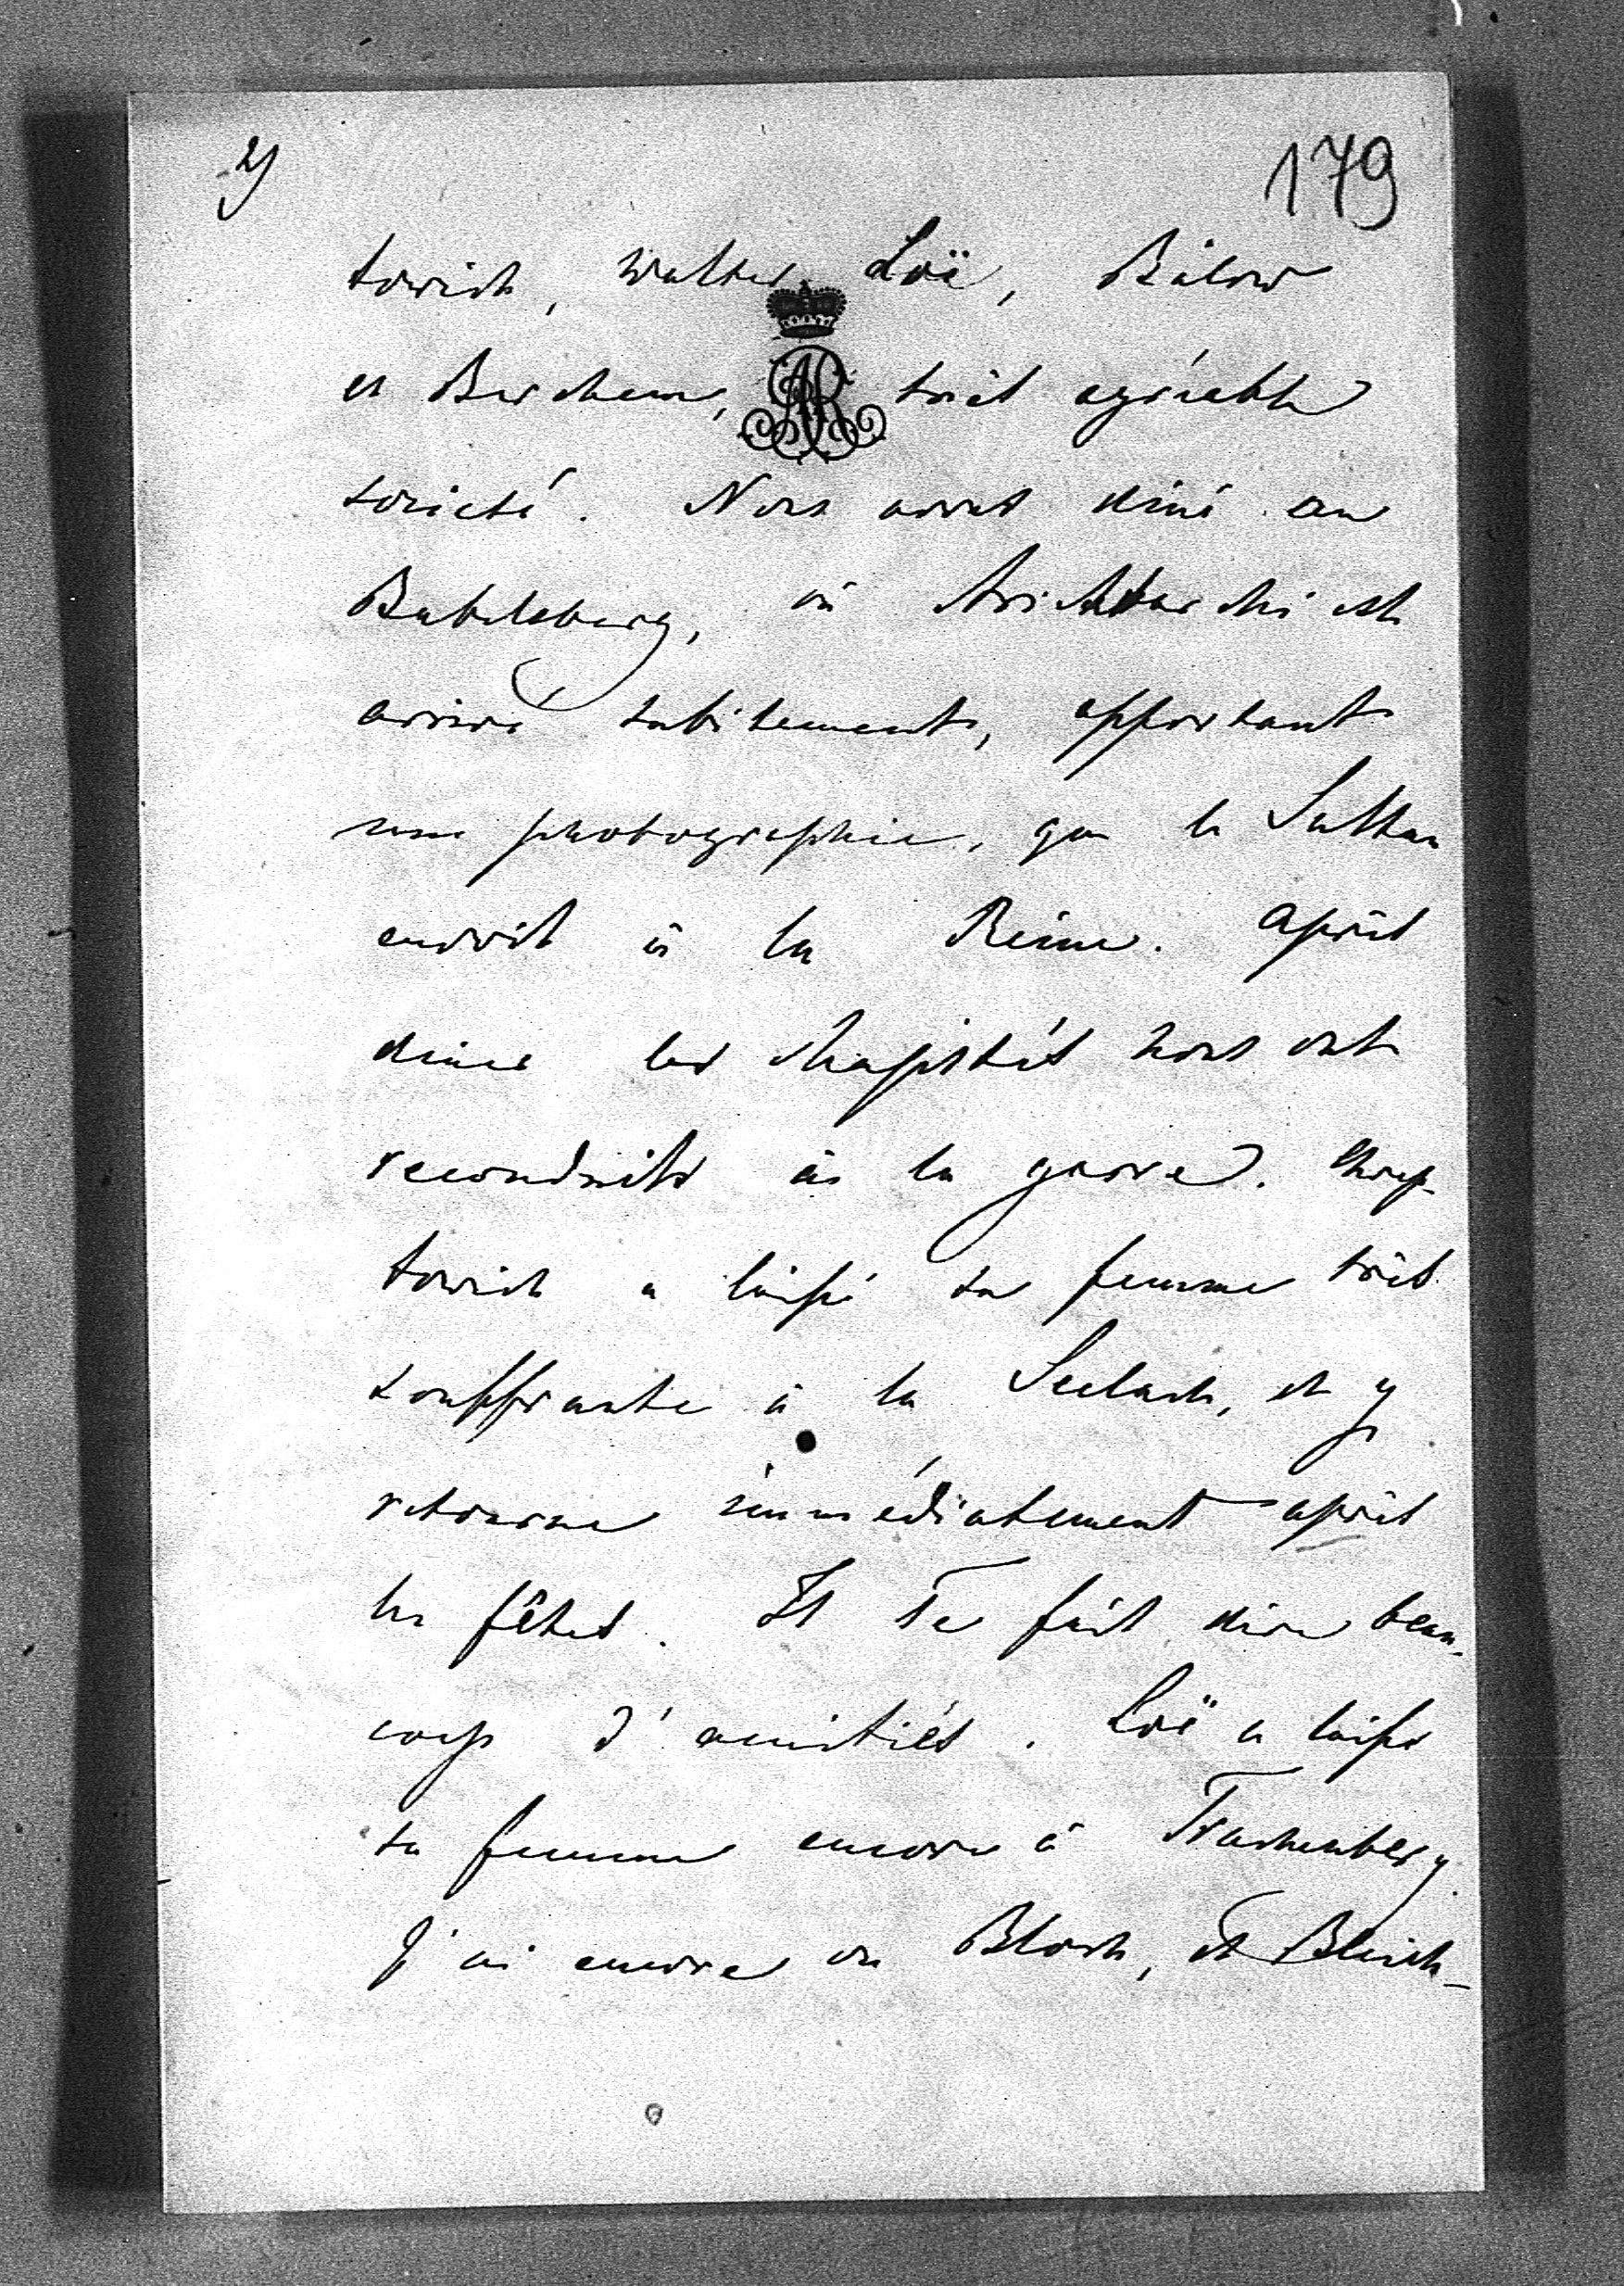 2)
179
towich, Walter Loë, Bülow
et Berchem, très agréable
AR
société. Nous avons dîné au
Babelsberg, où Aristarchi est
arrivé subitement, apportant
une photographie, que le Sultan
envoit à la Reine. Après
diner les Majestés nous ont
reconduits à la gare. Chrep-
towich a laissé sa femme très
souffrante à la Seelach, et y
retourne immédiatement après
les fêtes. Il Te fait dire beau-
coup d'amitiés. Loë a laissé
sa femme encore à Trachenberg.
J'ai encore vu Bloch, et Bleich-